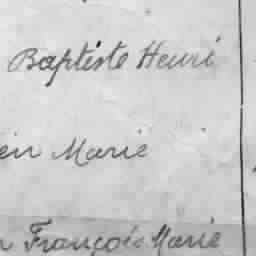 Baptiste Henri
en Marie
François Marie